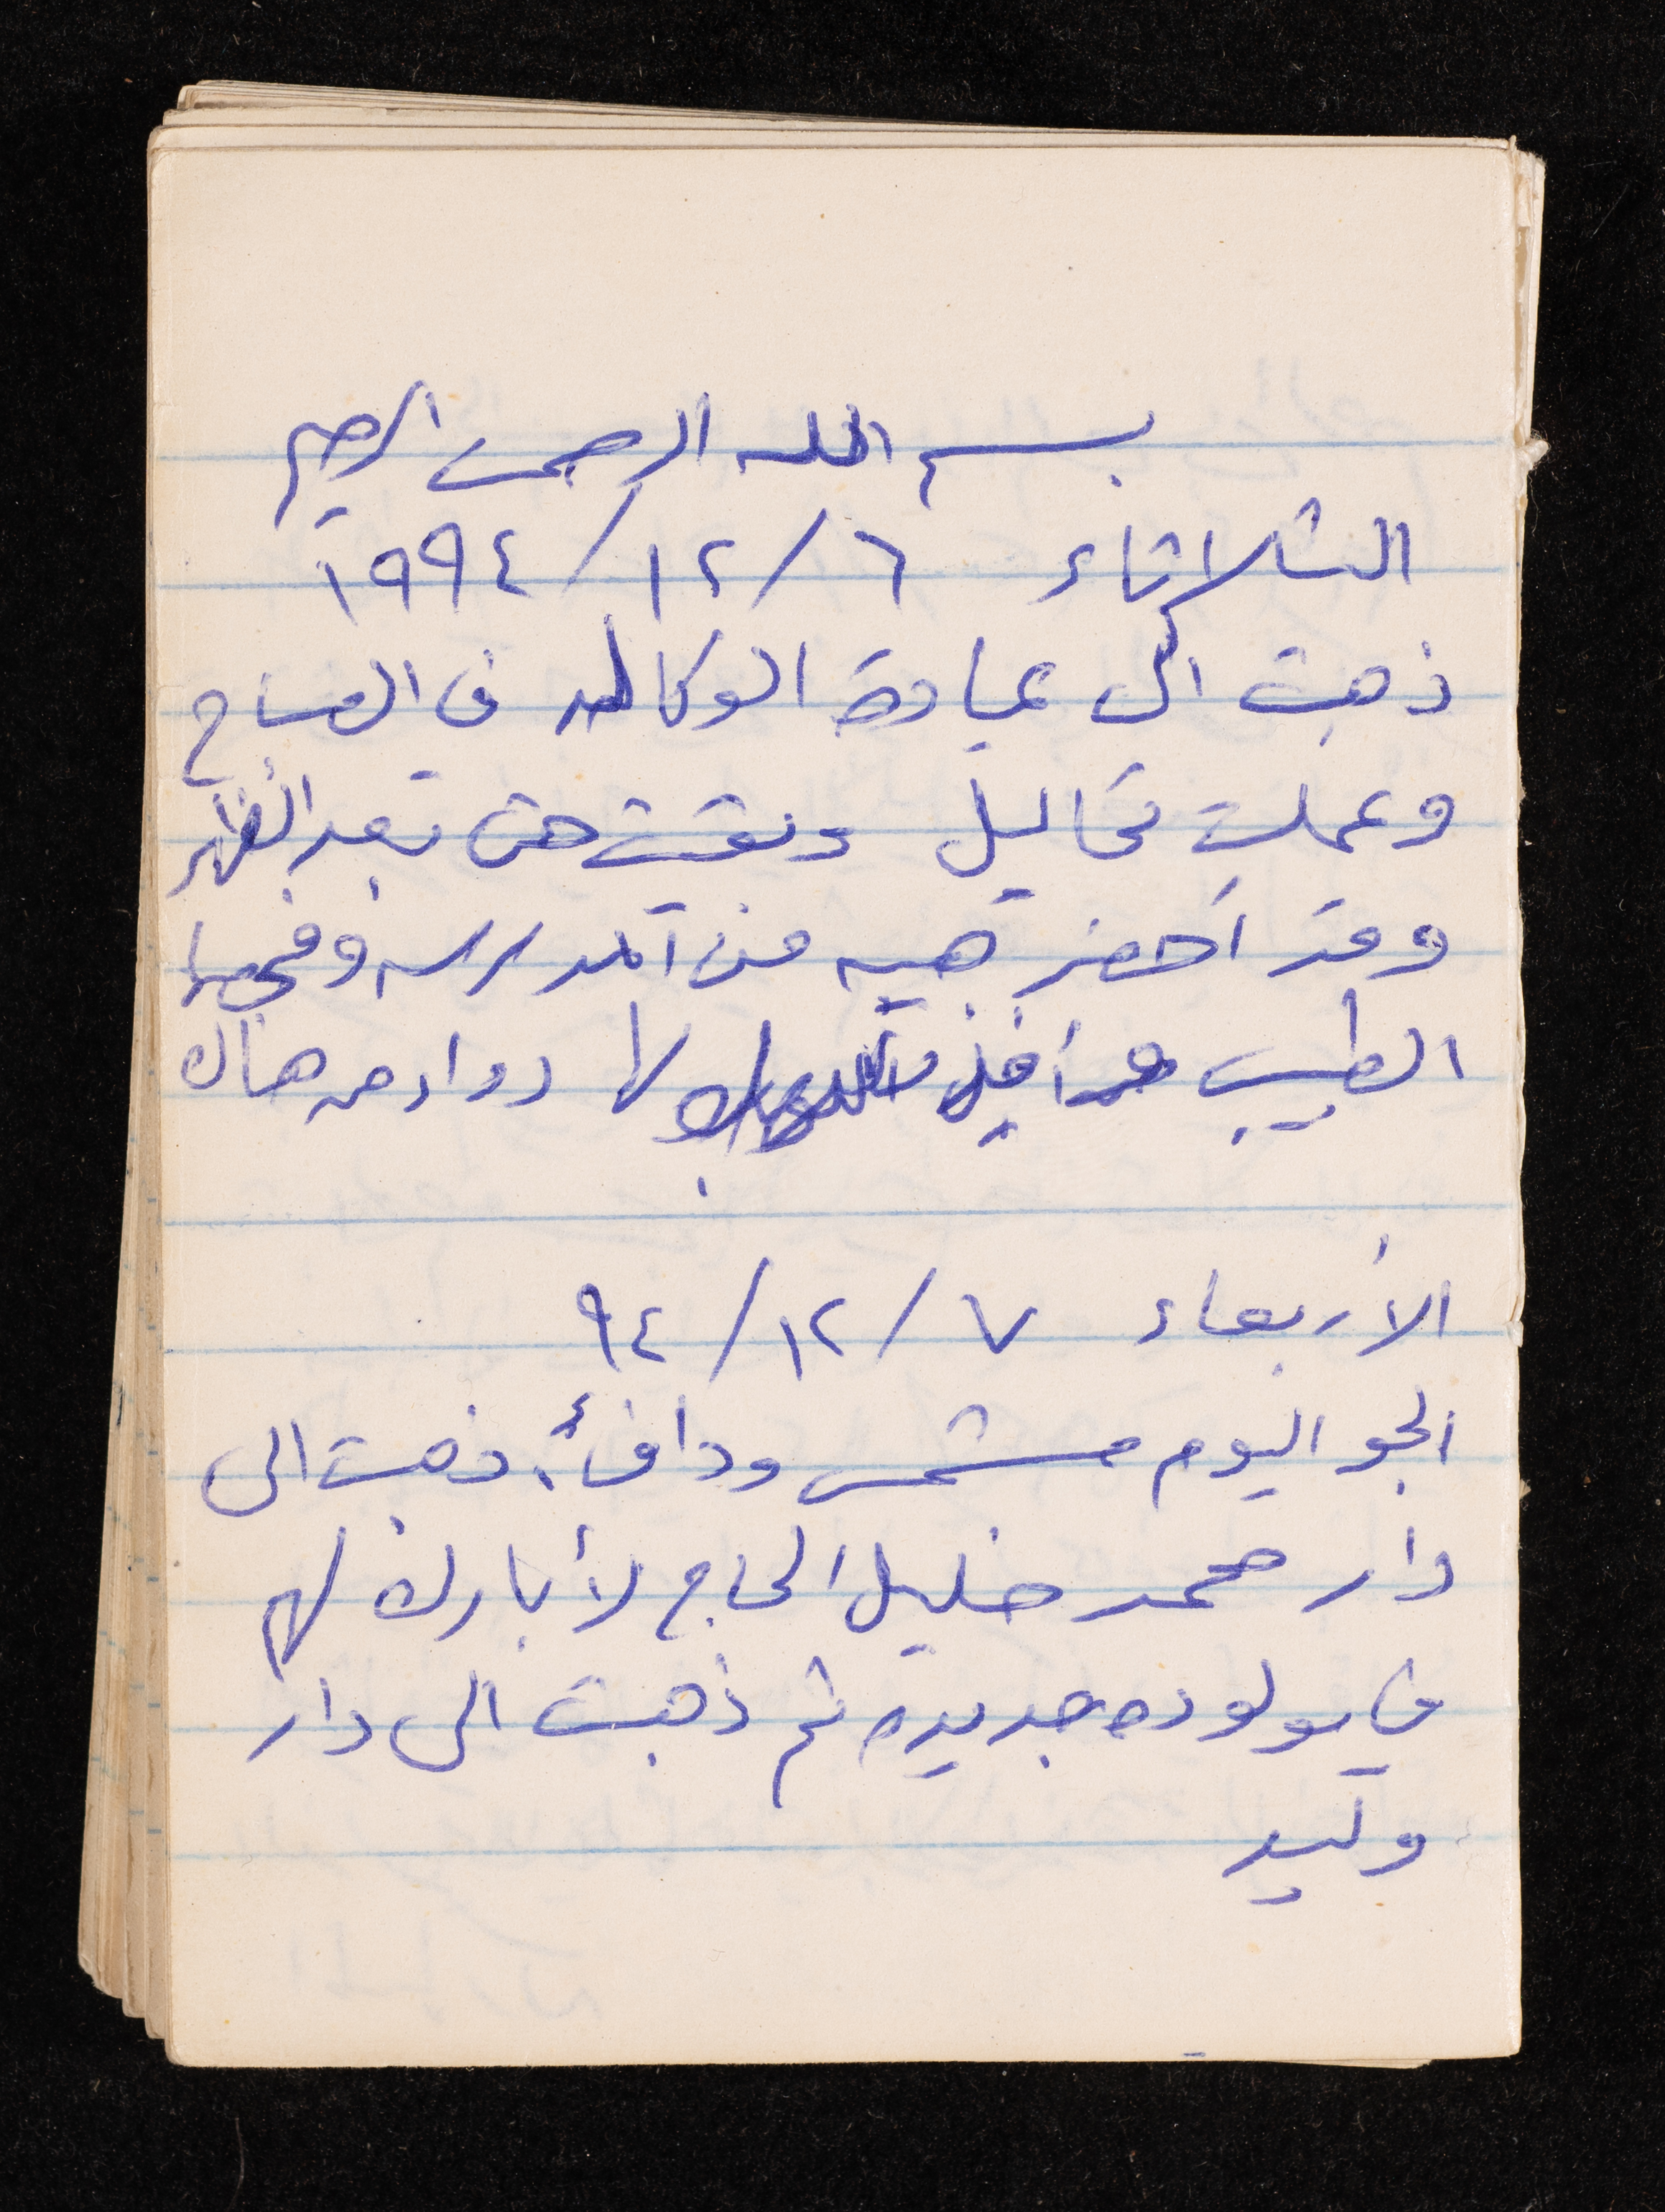 بسم الله الرحمن الرحيم
الثلاثاء ٦/١٢/١٩٩٤
ذهبت الى عيادة الوكاله في الصباح
وعملت تحاليل وبقيت حتى بعد الظهر
وقد أحضر هبه من المدرسه وفحصها
الطبيب لها دواء من هناك
الأربعاء ٧/١٢/٩٤
الجو اليوم مشمس ودافئ. ذهبت الى
دار محمد خليل الحاج لأبارك لهم
في مولوده جديده ثم ذهبت الى دار
وليد